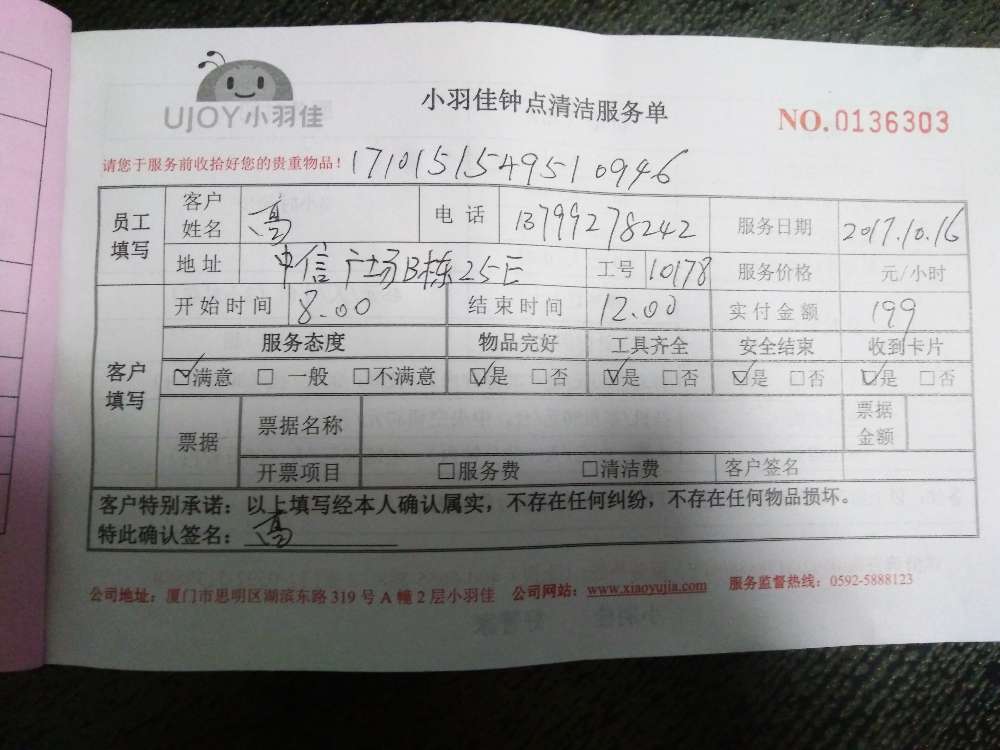 UJOY小羽佳
小羽佳钟点清洁服务单
NO.0136303
请您于服务前收拾好您的贵重物品！ 171015154951 0946
员工填写 客户姓名 高 电话 13799278242 服务日期 2017.10.16
地址 中信广场B栋25E 工号 10178 服务价格 元/小时
客户填写 开始时间 8.00 结束时间 12.00 实付金额 199
服务态度 物品完好 工具齐全 安全结束 收到卡片
☑满意 □一般 □不满意 ☑是 □否 ☑是 □否 ☑是 □否 ☑是 □否
票据 票据名称 票据金额
开票项目 □服务费 □清洁费 客户签名
客户特别承诺：以上填写经本人确认属实，不存在任何纠纷，不存在任何物品损坏。
特此确认签名：高
公司地址：厦门市思明区湖滨东路 319 号 A 幢 2 层小羽佳 公司网站：www.xiaoyujia.com 服务监督热线：0592-5888123